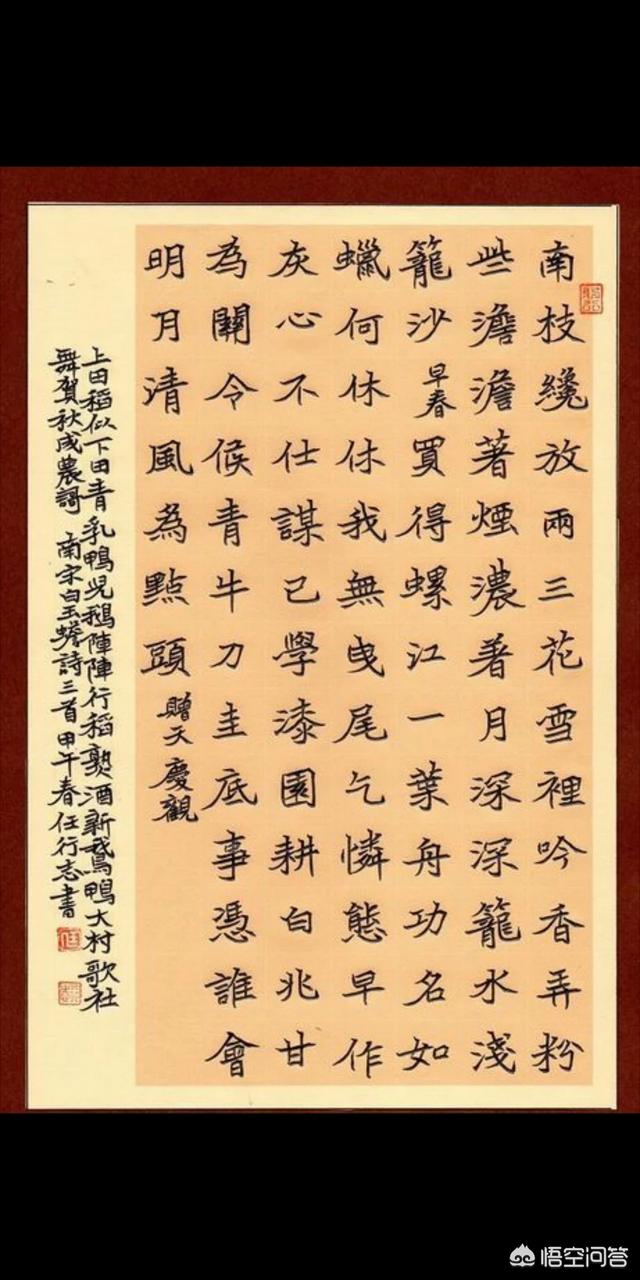 南枝纔放兩三花雪裡吟香弄粉
些澹澹著煙濃著月深深籠水淺
籠沙 早春 買得螺江一葉舟功名如
蠟何休休我無曳尾乞憐態早作
灰心不仕謀已學漆園耕白兆甘
為關令候青牛刀圭底事憑誰會
明月清風為點頭 贈天慶觀
上田稻似下田青乳鴨兒鵝陣陣行稻熟酒新鵞鴨大村歌社
舞賀秋成農謌 南宋白玉蟾詩三首甲午春任行志書
悟空问答